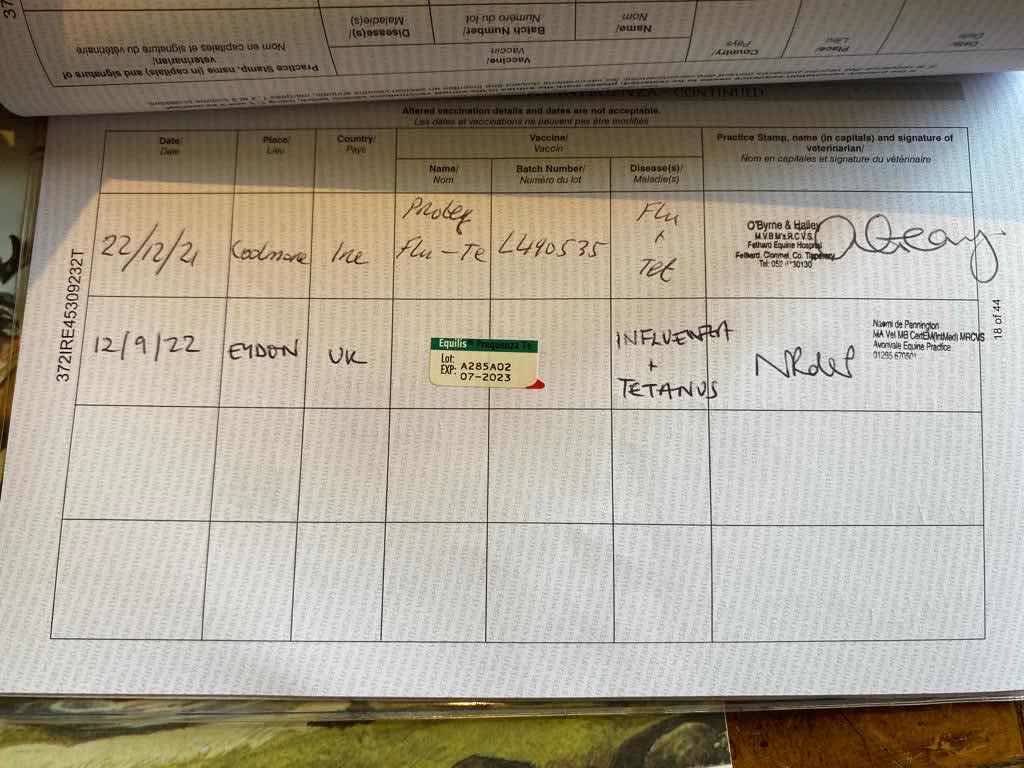 Practice Stamp, name (in capitals) and signature of
veterinarian/
Nom en capitales et signature du vétérinaire
Vaccine/
Vaccin
Name/
Nom
Batch Number/
Numéro du lot
Disease(s)/
Maladie(s)
Country/
Pays
Place/
Lieu
Date/
Date
CONTINUED
Altered vaccination details and dates are not acceptable.
Les dates et vaccinations ne peuvent pas être modifiés
Date/
Date
Place/
Lieu
Country/
Pays
Vaccine/
Vaccin
Name/
Nom
Batch Number/
Numéro du lot
Disease(s)/
Maladie(s)
Practice Stamp, name (in capitals) and signature of
veterinarian/
Nom en capitales et signature du vétérinaire
22/12/21
Coolmore
Ire
Proteq
Flu-Te
L490535
Flu
+
Tet
O'Byrne & Halley
M.V.B M's.R.C.V.S.
Fethard Equine Hospital
Fethard, Clonmel, Co. Tipperary
12/9/22
EYDON
UK
Equilis Prequenza Te
Lot: A285A02
EXP: 07-2023
INFLUENZA
+
TETANUS
Naomi de Pennington
MA Vet MB CertEM(IntMed) MRCVS
Avonvale Equine Practice
372IRE45309232T
18 of 44